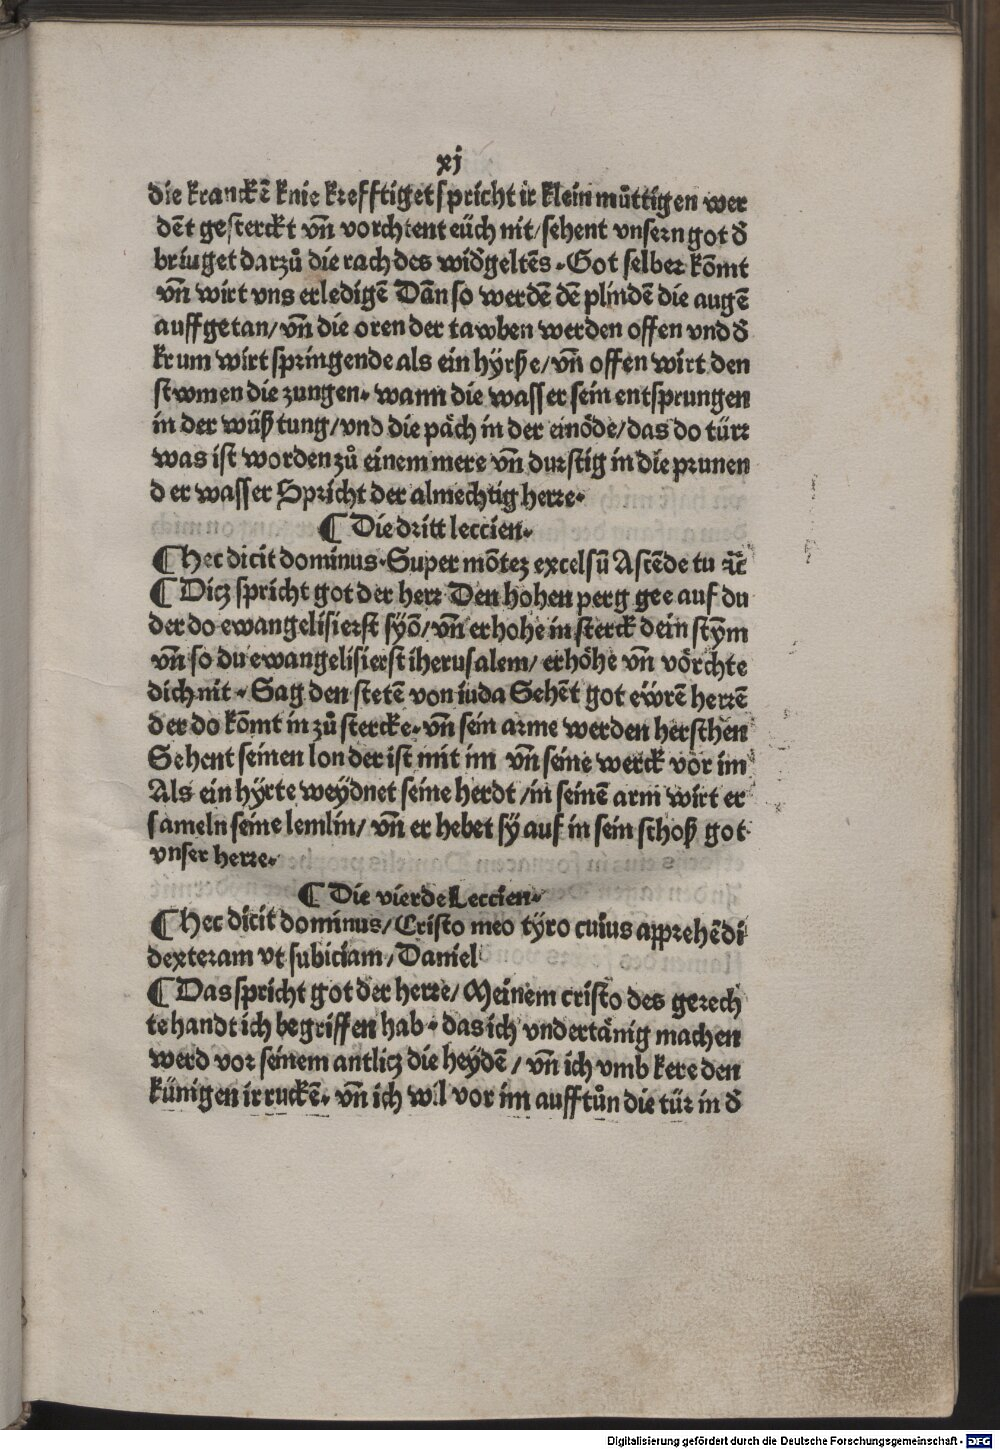 xj
die kranckẽ knie krefftiget spricht ir klein muͤttigen wer
dẽt gesterckt vñ vorchtent euͤch nit/ sehent vnsern got ꝺ
bringet darzuͦ die rach des widgeltẽs. Got selber kõmt
vñ wirt vns erledigẽ Dãn so werdẽ dẽ plindẽ die augẽ
auff getan/ vñ die oren der tawben werden offen vnd ꝺ
krum wirt springende als ein hÿrße/ vñ offen wirt den
stwmen die zungen. wann die wasser sein entsprungen
in der wüßtung/ vnd die päch in der einöde/ das do türr
was ist worden zuͦ einem mere vñ durstig in die prunen
der wasser Spricht der almechtig herre.
¶ Die dritt leccien.
¶ Hec dicit dominus. Super mõtez excelsũ Ascẽde tu ꝛc̃
¶ Dicz spricht got der herr Den hohen perg gee auf du
der do ewangelisierst syõ/ vñ erhohe in sterck dein stÿm
vñ so du ewangelisierst iherusalem/ erhöhe vñ vörchte
dich nit. Sag den stetẽ von iuda Sehẽt got eẅrẽ herrẽ
der do kõmt in zuͦ stercke. vñ sein arme werden herschen
Sehent seinen lon der ist mit im vñ seine werck vor im
Als ein hÿrte weÿdnet seine herdt/ in seinẽ arm wirt er
sameln seine lemlin/ vñ er hebet sÿ auf in sein schoß got
vnser herre.
¶ Die vierde Leccien.
¶ Hec dicit dominus/ Cristo meo tÿro cuius apprehẽdi
dexteram vt subiciam/ Daniel
¶ Das spricht got der herre/ Meinem cristo des gerech
te handt ich begriffen hab. das ich vndertänig machen
werd vor seinem antlicz die heÿdẽ/ vñ ich vmb kere den
künigen ir ruckẽ. vñ ich wil vor im auff tuͦn die tür in ꝺ
Digitalisierung gefördert durch die Deutsche Forschungsgemeinschaft - DFG